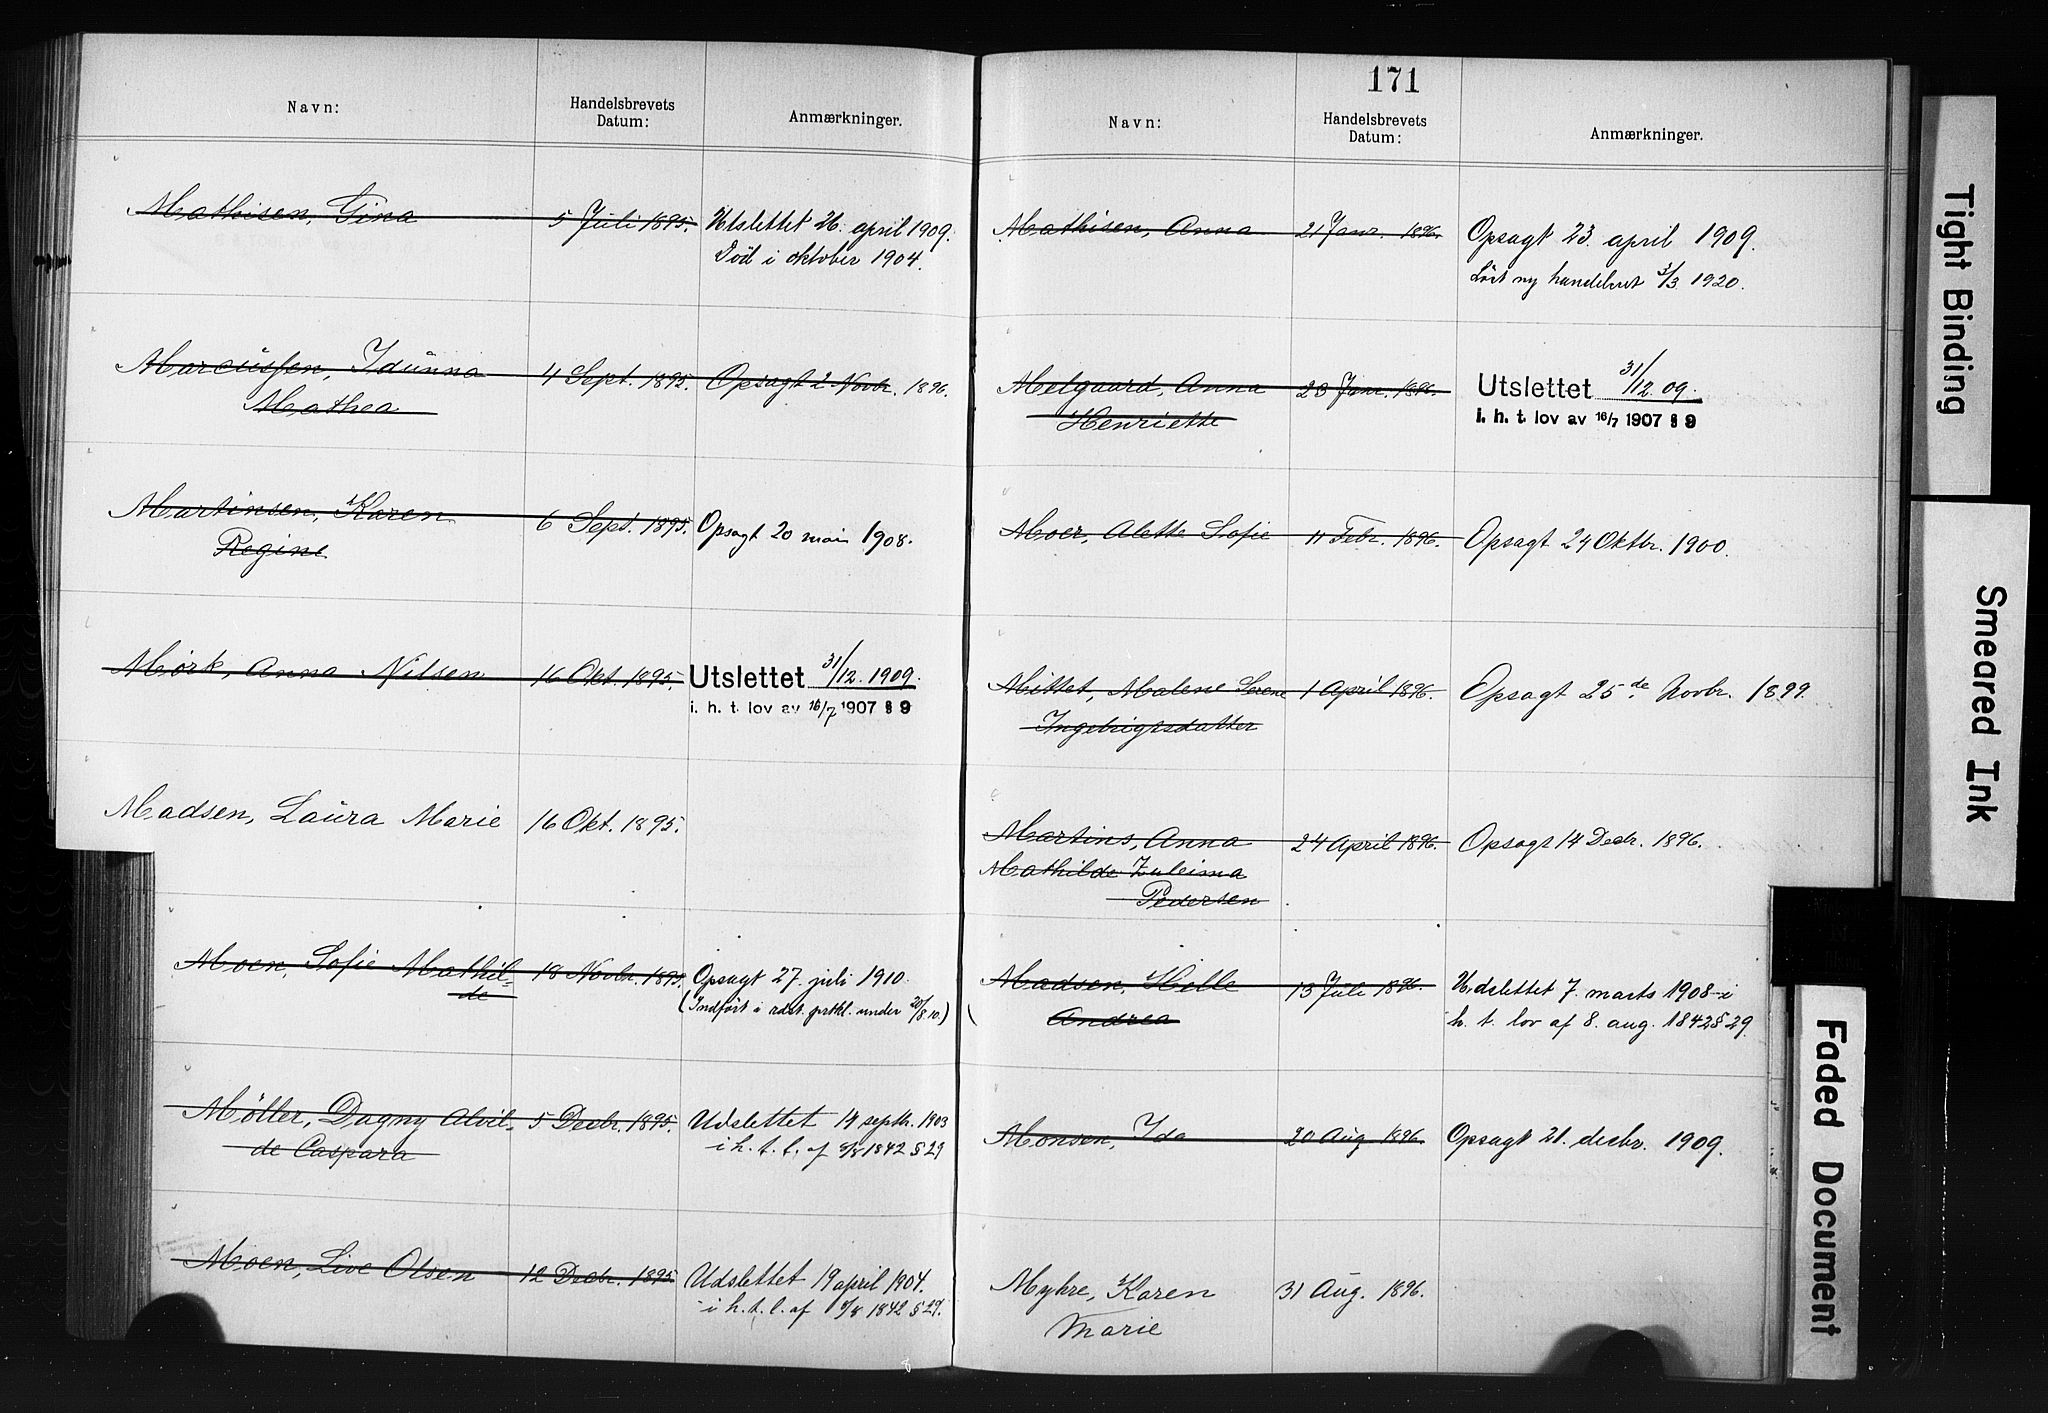 Navn:
Handelsbrevets
Datum:
Anmærkninger.
Mathisen, Gina
5 Juli 1895.
Utslettet 26. april 1909.
Död i oktober 1904.
Marcussen, Idunna
Mathea
4 Sept. 1895.
Opsagt 2 Novbr. 1896.
Martinsen, Karen
Regine
6 Sept. 1895.
Opsagt 20 mai 1908.
Mørk, Anna Nilsen
16 Okt. 1895.
Utslettet 31/12. 1909.
i. h. t. lov av 16/7 1907 § 9
Madsen, Laura Marie
16 Okt. 1895.
Moen, Sofie Mathil-
de
18 Novbr. 1895.
Opsagt 27. juli 1910.
(Indført i rdst. prtkl. under 20/8 10.)
Möller, Dagny Alvil-
de Caspara
5 Decbr. 1895.
Udslettet 14 septbr. 1903
i h. t. l. af 8/8 1842 § 29
Moen, Live Olsen
12 Decbr. 1895
Udslettet 19 april 1904.
i h. t. l. af 8/8 1842 § 29.
171
Navn:
Handelsbrevets
Datum:
Anmærkninger.
Mathisen, Anna
21 Janr. 1896.
Opsagt 23. april 1909.
Löst ny handelsbret 3/3 1920.
Melgaard, Anna
Henriette
23 Janr. 1896.
Utslettet 31/12. 09.
i. h. t. lov av 16/7 1907 § 9
Moer, Alette Sofie
11 Febr. 1896.
Opsagt 24 Oktbr. 1900.
Mittet, Malene Serene
Ingebrigtsdatter
1 April 1896.
Opsagt 25de Novbr. 1899.
Martins, Anna
Mathilde Zuleima
Pedersen
24 April 1896.
Opsagt 14 Decbr. 1896.
Madsen, Helle
Andrea
13 Juli 1896.
Udslettet 7. marts 1908 i
h. t. lov af 8. aug. 1842 § 29.
Monsen, Ida
20 Aug. 1896.
Opsagt 21. decbr. 1909.
Myhre, Karen
Marie
31 Aug. 1896.
Tight Binding
Smeared Ink
Faded Document